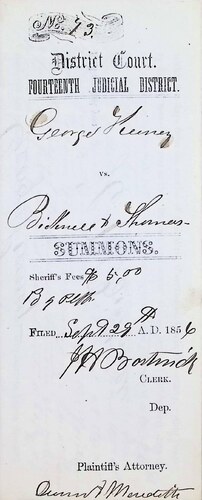 No. 93.
District Court.
FOURTEENTH JUDICIAL DISTRICT.
George
vs.
Bicknell & Thomas
SUMMONS.
Sheriff's Fees $ 5,00
By Plff
FILED Sept 29th A. D. 1856
Bostwick
CLERK.
Dep.
Plaintiff's Attorney.
Meredith